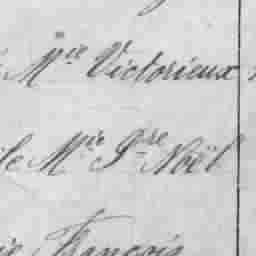 Mie Victorieux
le Mie Jne Noël
François